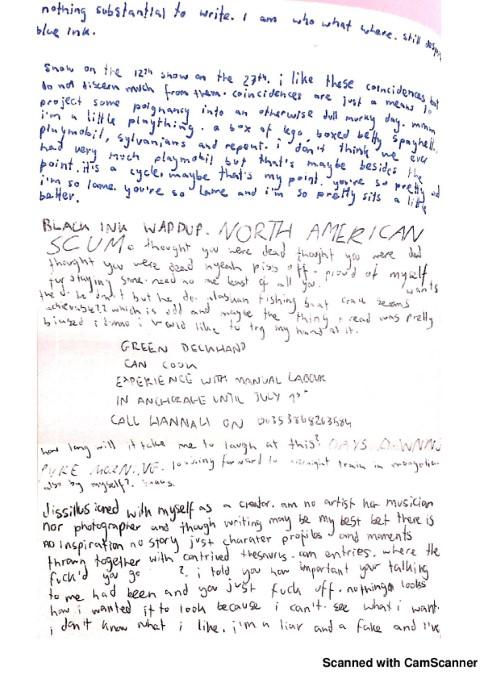 nothing substantial to write. i am who what where. still despite
blue ink.
snow on the 12th snow on the 27th. i like these coincidences but
do not discern much from them. coincidences are just a means to
project some poignancy into an otherwise dull murky day. mmm
i'm a little plaything. a box of lego, boxed betty spaghetti,
playmobil, sylvanians and repeat. i don't think we ever
had very much playmobil but that's maybe besides the
point. it's a cycle, maybe that's my point. you're so pretty and
i'm so lame. you're so lame and i'm so pretty sits a little
better.
BLACK INK WADDUP. NORTH AMERICAN
SCUM. thought you were dead thought you were dead
thought you were dead nyeah piss off. proud of myself
for staying sane. need no me least of all you. wants
the d. he don't but hey do. alaskan fishing boat crew seems
achievable?? which is odd and maybe the thing i read was pretty
biased i dunno i would like to try my hand at it.
GREEN DECKHAND
CAN COOK
EXPERIENCE WITH MANUAL LABOUR
IN ANCHORAGE UNTIL JULY 1ST
CALL HANNAH ON
how long will it take me to laugh at this? DAYS DAWNING
PURE MORNING. looking forward to overnight train in
also by myself?.
dissillusioned with myself as a creator. am no artist nor musician
nor photographer and though writing may be my best bet there is
no inspiration no story just charater profiles and moments
thrown together with contrived thesaurus. am entries. where the
fuck'd you go ?. i told you how important your talking
to me had been and you just fuck off. nothing looks
how i wanted it to look because i can't see what i want.
i don't know what i like. i'm a liar and a fake and i've
Scanned with CamScanner